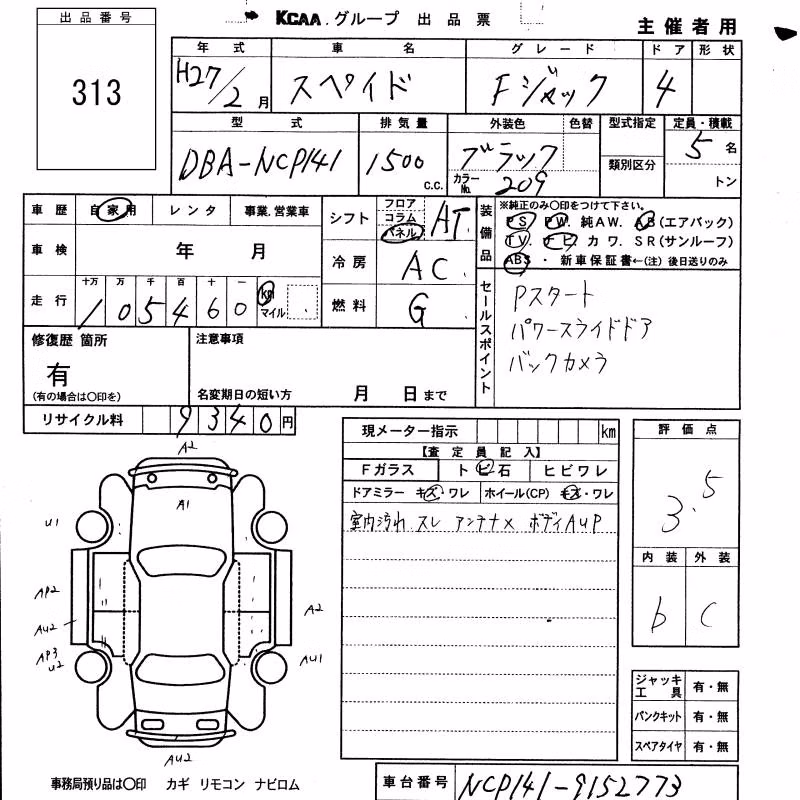 KCAA.グループ 出品票
主催者用
出品番号
313
年式 車名 グレード ドア 形状
H27/2月 スペイド Fジャック 4
型式 排気量 外装色 色替 型式指定 定員・積載
DBA-NCP141 1500 c.c. ブラック カラーNo. 209 類別区分 5名 トン
車歴 自家用 レンタ 事業.営業車
車検 年 月
走行 十万 万 千 百 十 一
105460 km マイル
シフト フロア コラム パネル AT
冷房 AC
燃料 G
装備品
※純正のみ〇印をつけて下さい。
PS PW. 純AW. AB(エアバック)
TV. ナビ カワ. SR(サンルーフ)
ABS ・ 新車保証書←(注) 後日送りのみ
セールスポイント
Pスタート
パワースライドドア
バックカメラ
修復歴 箇所
有
(有の場合は〇印を)
注意事項
名変期日の短い方 月 日まで
リサイクル料 9340円
現メーター指示 km
【査定員記入】
Fガラス トビ石 ヒビワレ
ドアミラー キズ・ワレ ホイール(CP) キズ・ワレ
室内汚れ スレ アンテナ× ボディAUP
評価点
3.5
内装 外装
b C
A2
A1
U1
AP2
AU2
AP3
U2
A2
AU1
AU2
ジャッキ 工具 有・無
パンクキット 有・無
スペアタイヤ 有・無
事務局預り品は〇印 カギ リモコン ナビロム
車台番号 NCP141-9152773